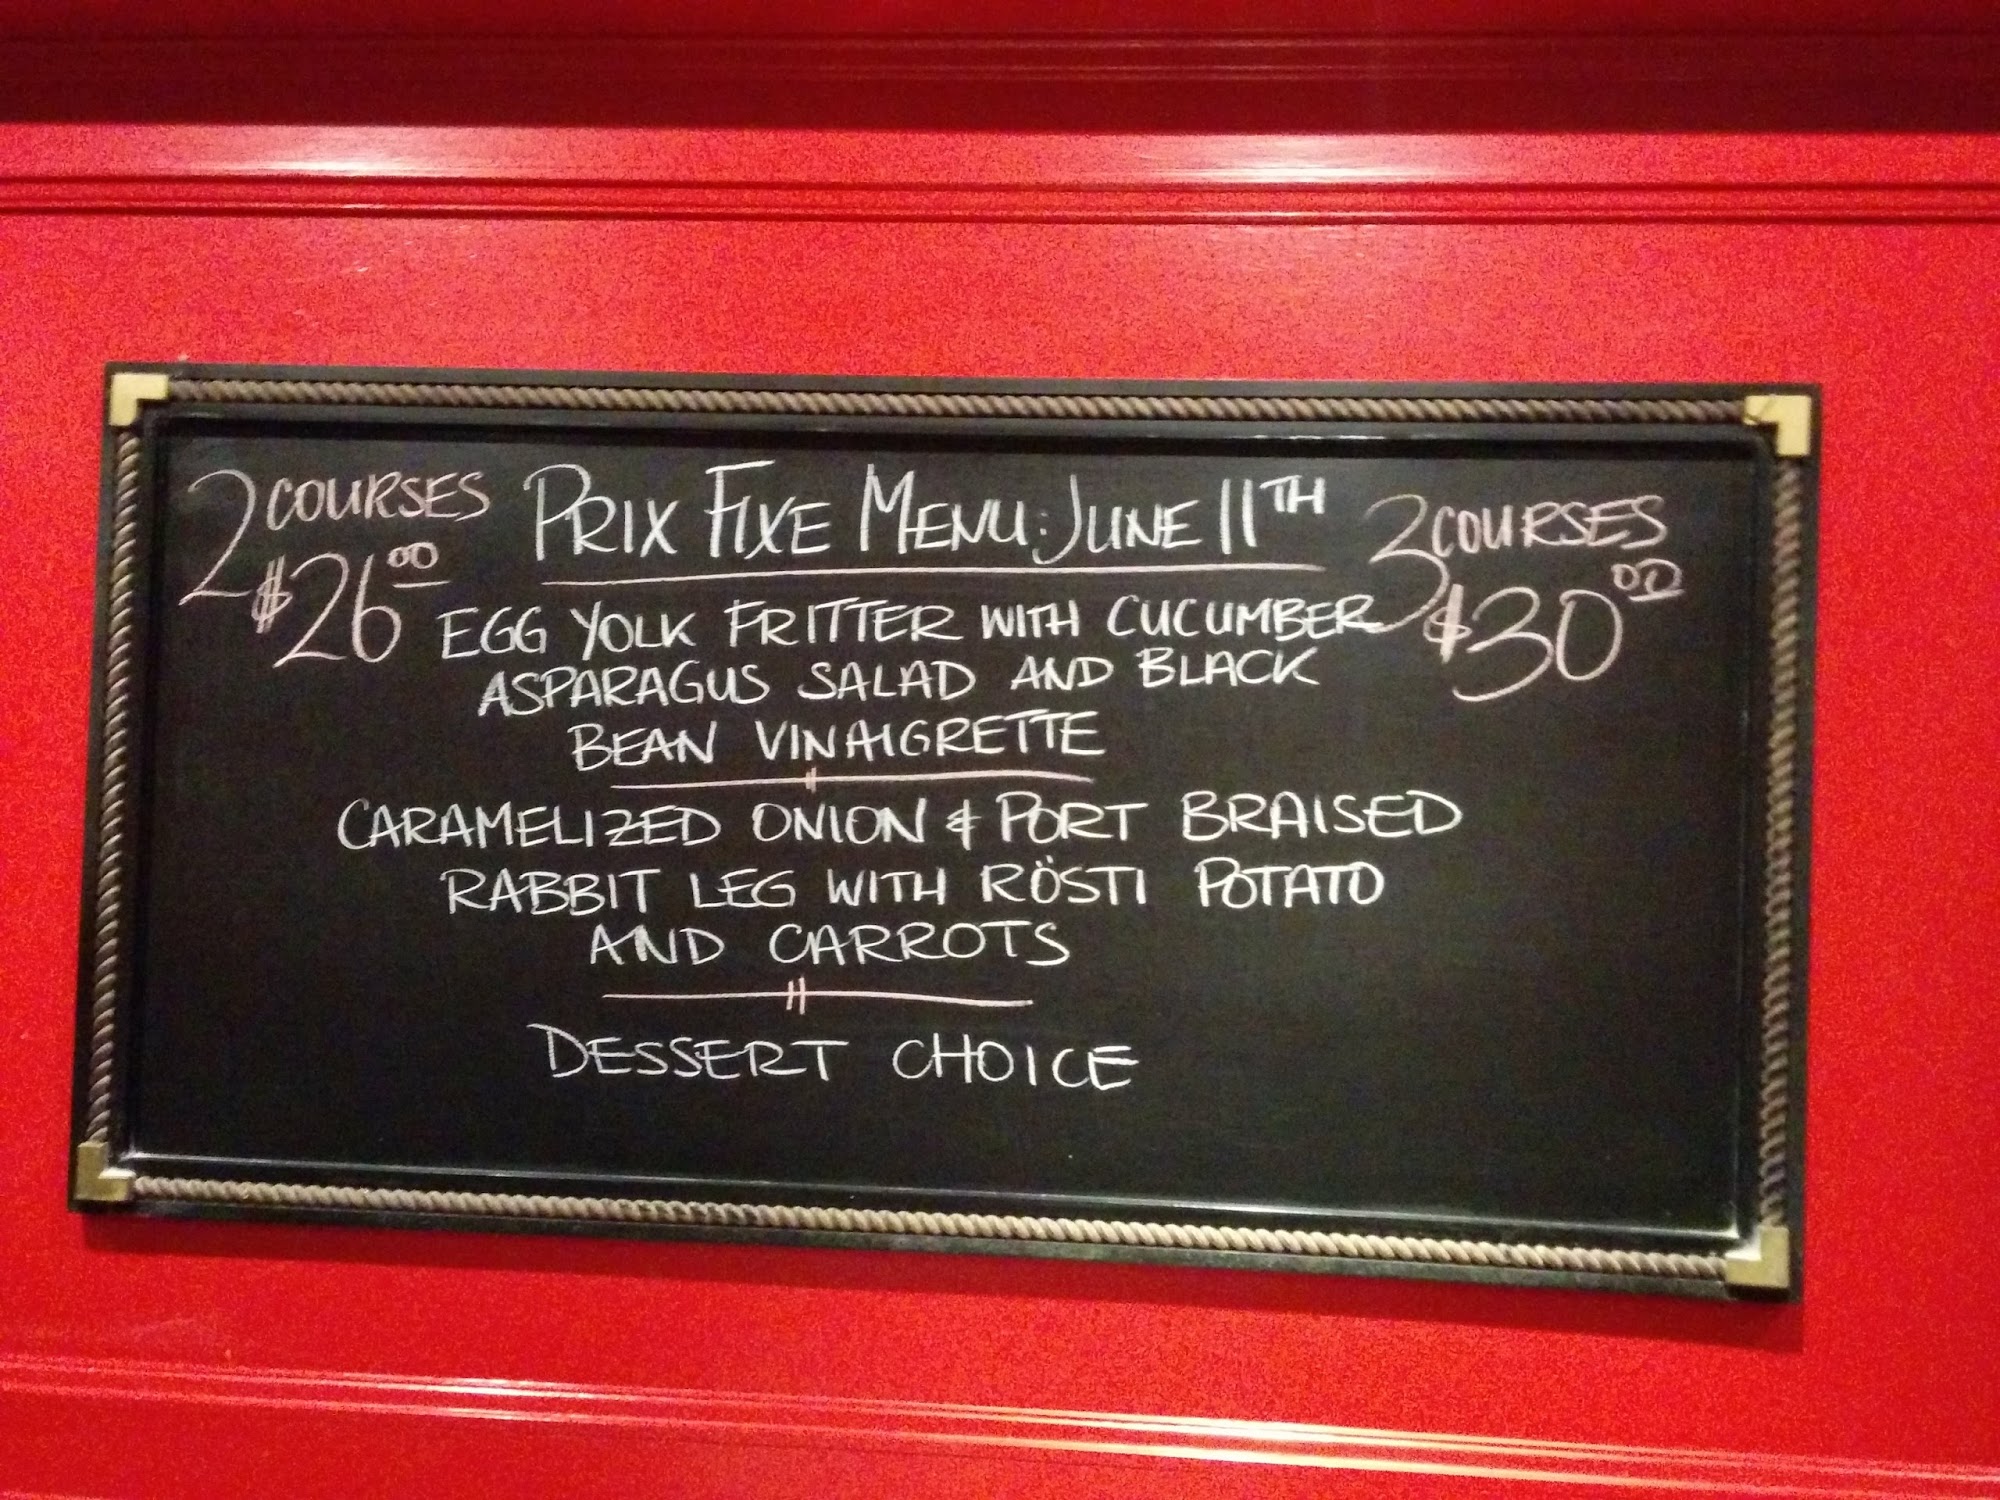 2 COURSES
$26.00
PRIX FIXE MENU: JUNE 11TH
3 COURSES
$30.00
EGG YOLK FRITTER WITH CUCUMBER
ASPARAGUS SALAD AND BLACK
BEAN VINAIGRETTE
CARAMELIZED ONION & PORT BRAISED
RABBIT LEG WITH RÖSTI POTATO
AND CARROTS
DESSERT CHOICE